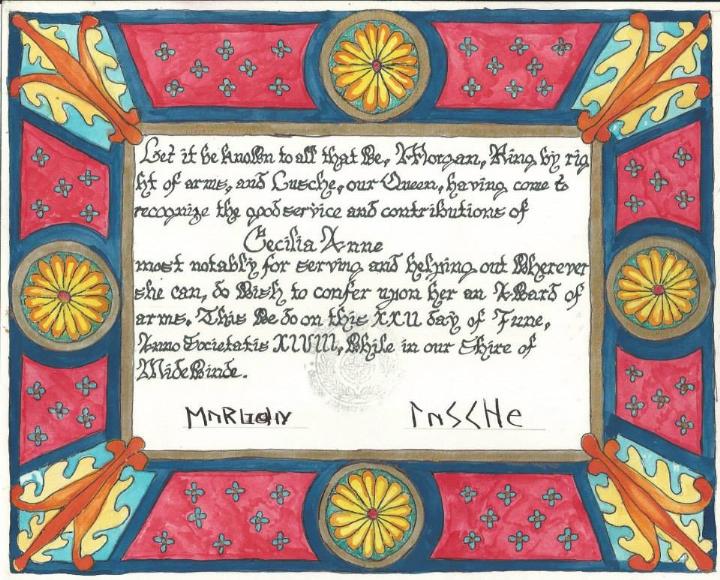 Let it be known to all that We, Morgan, King by rig
ht of arms, and Lusche, our Queen, having come to
recognize the good service and contributions of
Cecilia Anne
most notably for serving and helping out Wherever
she can, do Wish to confer upon her an AWard of
arms. This We do on this XXII day of June,
Anno Societatis XLVIII, While in our Shire of
MideWinde.